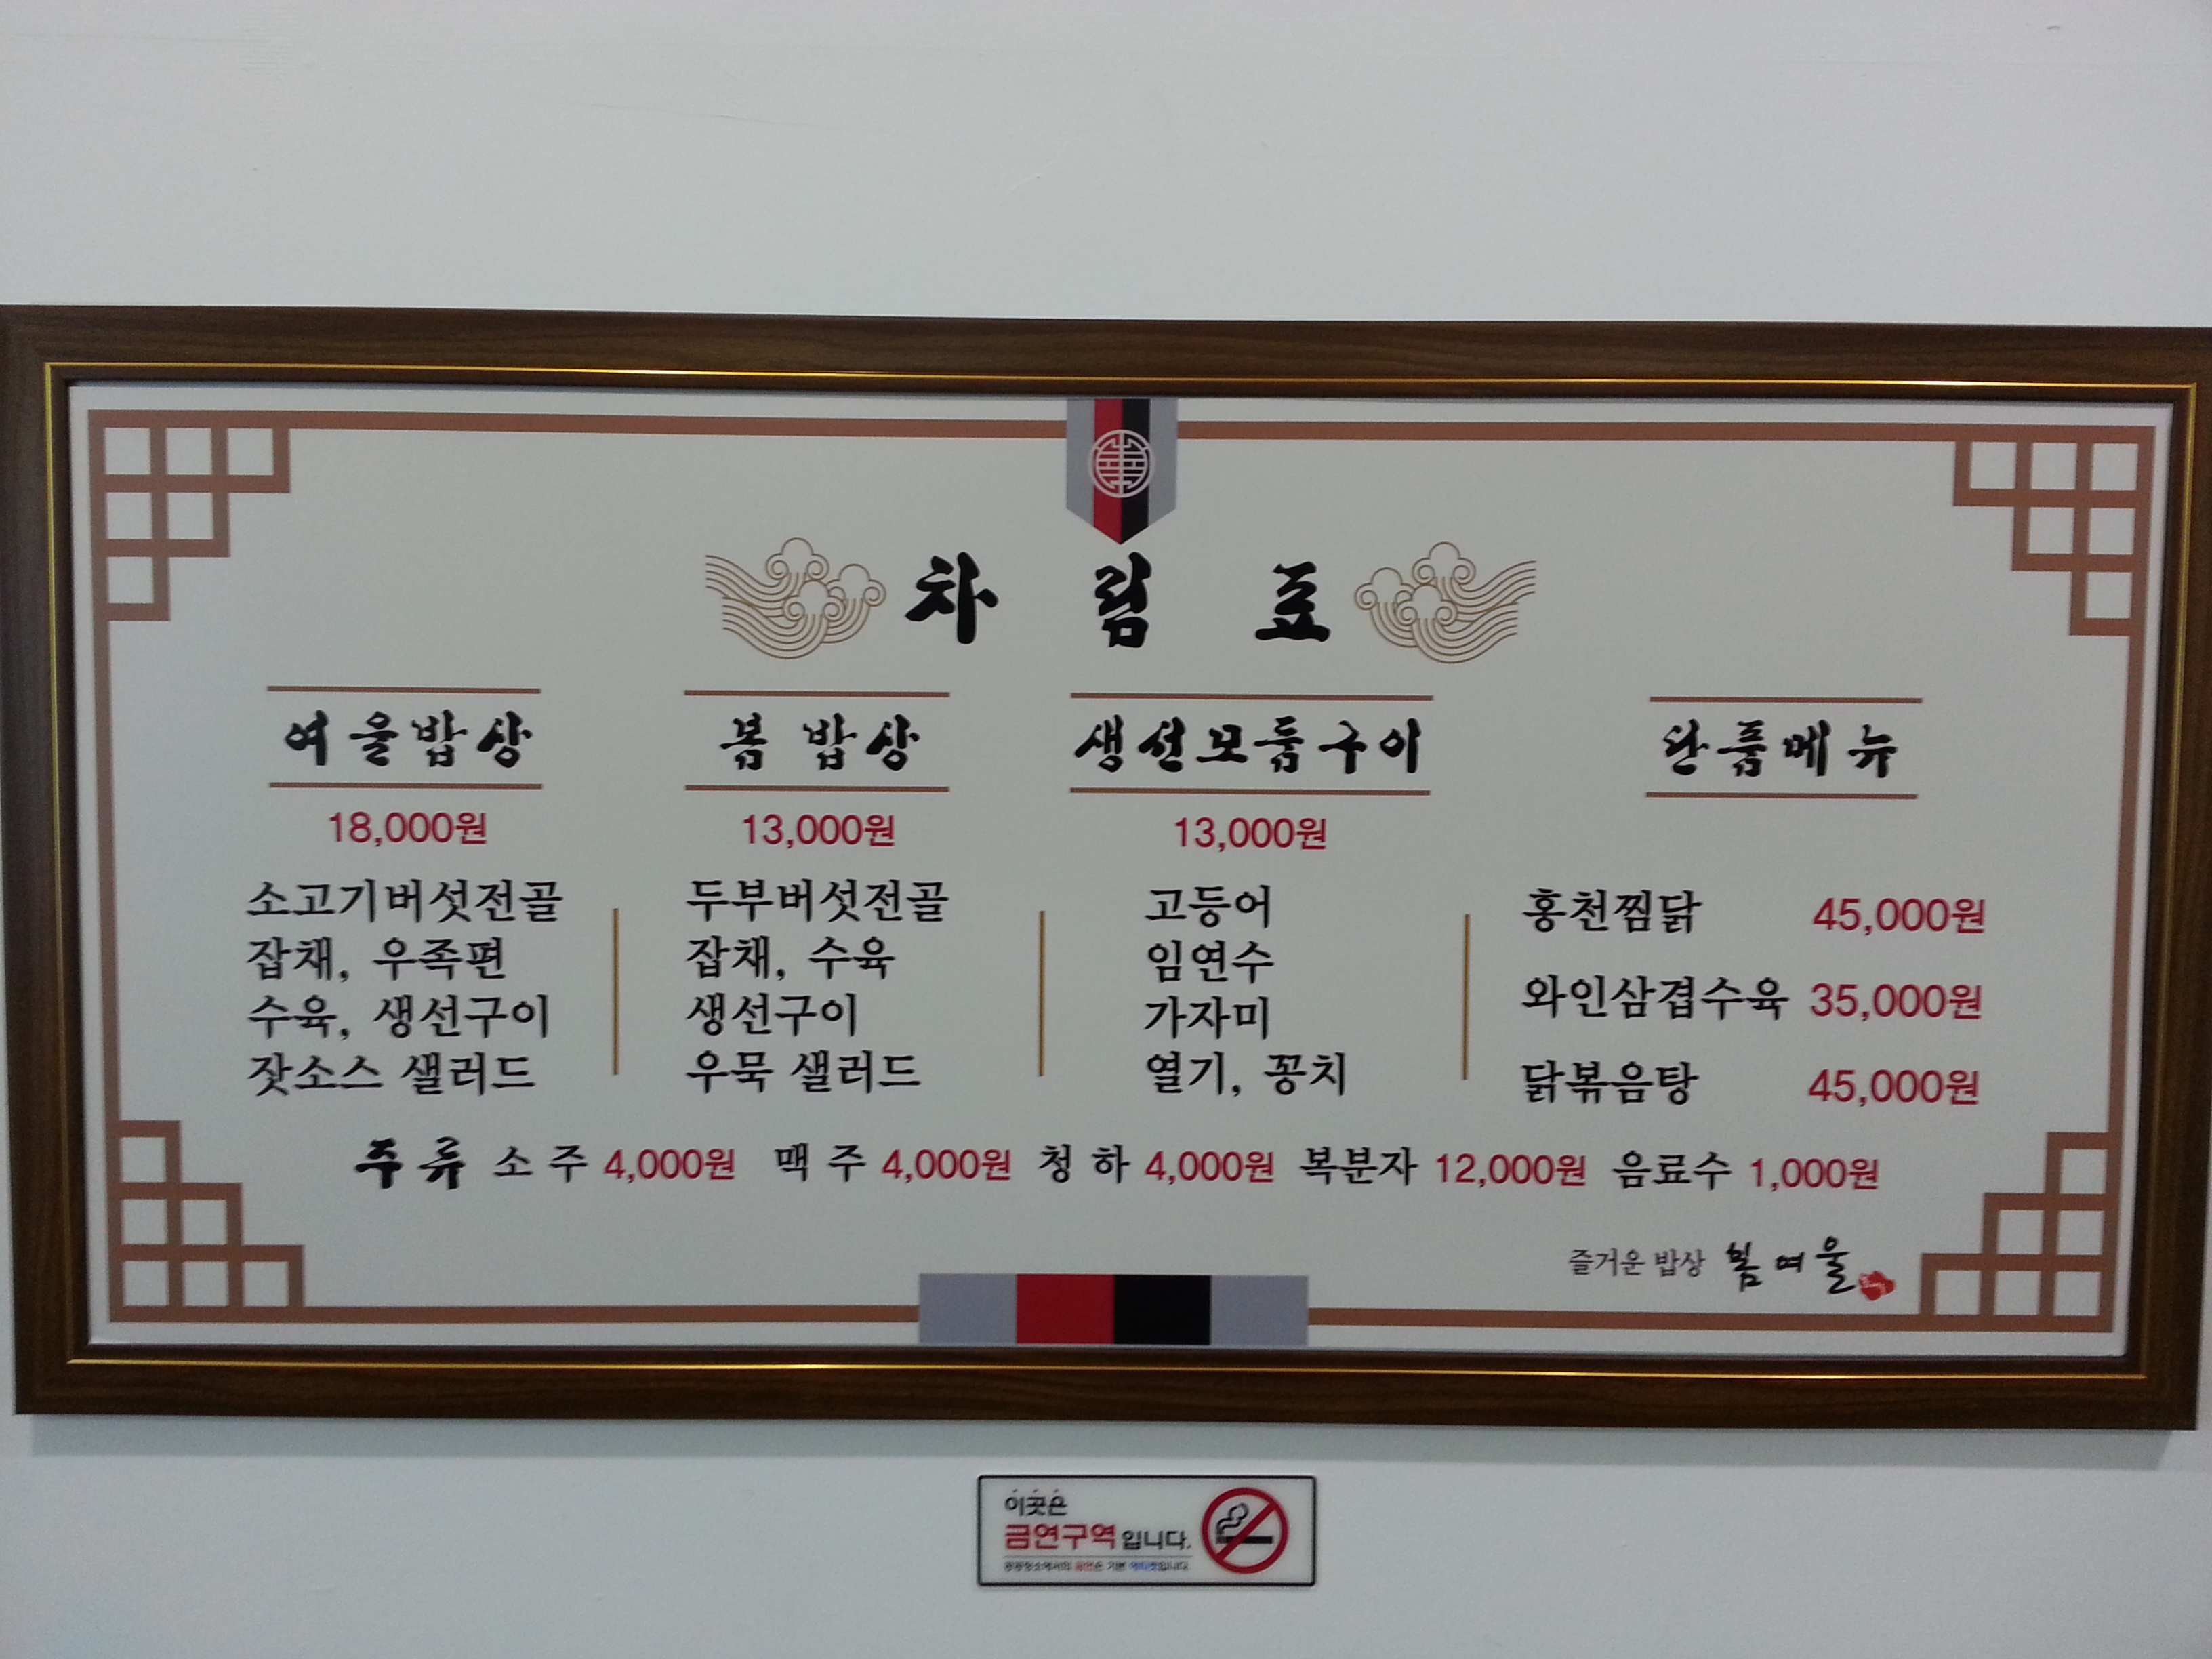 차림표
여울밥상
18,000원
소고기버섯전골
잡채, 우족편
수육, 생선구이
잣소스 샐러드
봄 밥상
13,000원
두부버섯전골
잡채, 수육
생선구이
우묵 샐러드
생선모둠구이
13,000원
고등어
임연수
가자미
열기, 꽁치
단품메뉴
홍천찜닭 45,000원
와인삼겹수육 35,000원
닭볶음탕 45,000원
주류 소주 4,000원 맥주 4,000원 청하 4,000원 복분자 12,000원 음료수 1,000원
즐거운 밥상 봄여울
이곳은
금연구역입니다.
공공장소에서의 금연은 기본 에티켓입니다